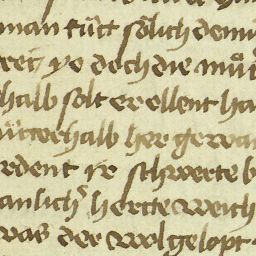 man tůtt sőlich demů
ret yo doch die můt
halb solt er ellent ha
můtterhalb her gewa
rdent ir schwerte b
anlich hertteweich
was der wolgelopt